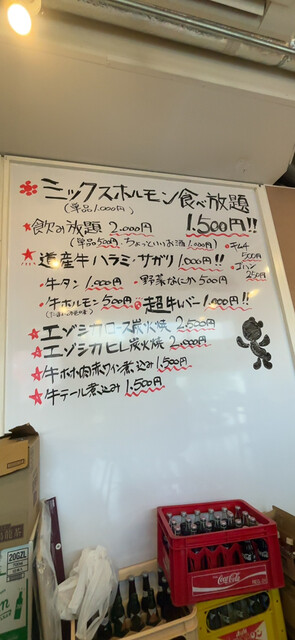 ミックスホルモン食べ放題
(単品1.000円) 1.500円!!
飲み放題 2.000円
(単品500円.ちょっといいお酒1.000円)
・キムチ 500円
道産牛ハラミ・サガリ 1.000円!!
・ゴハン 250円
・牛タン 1.000円 ・野菜なんか 500円
・牛ホルモン 500円 超牛レバー 1.000円!!
エゾシカロース炭火焼 2.500円
エゾシカヒレ炭火焼 2.000円
牛ホホ肉赤ワイン煮込み 1.500円
牛テール煮込み 1.500円
Coca-Cola